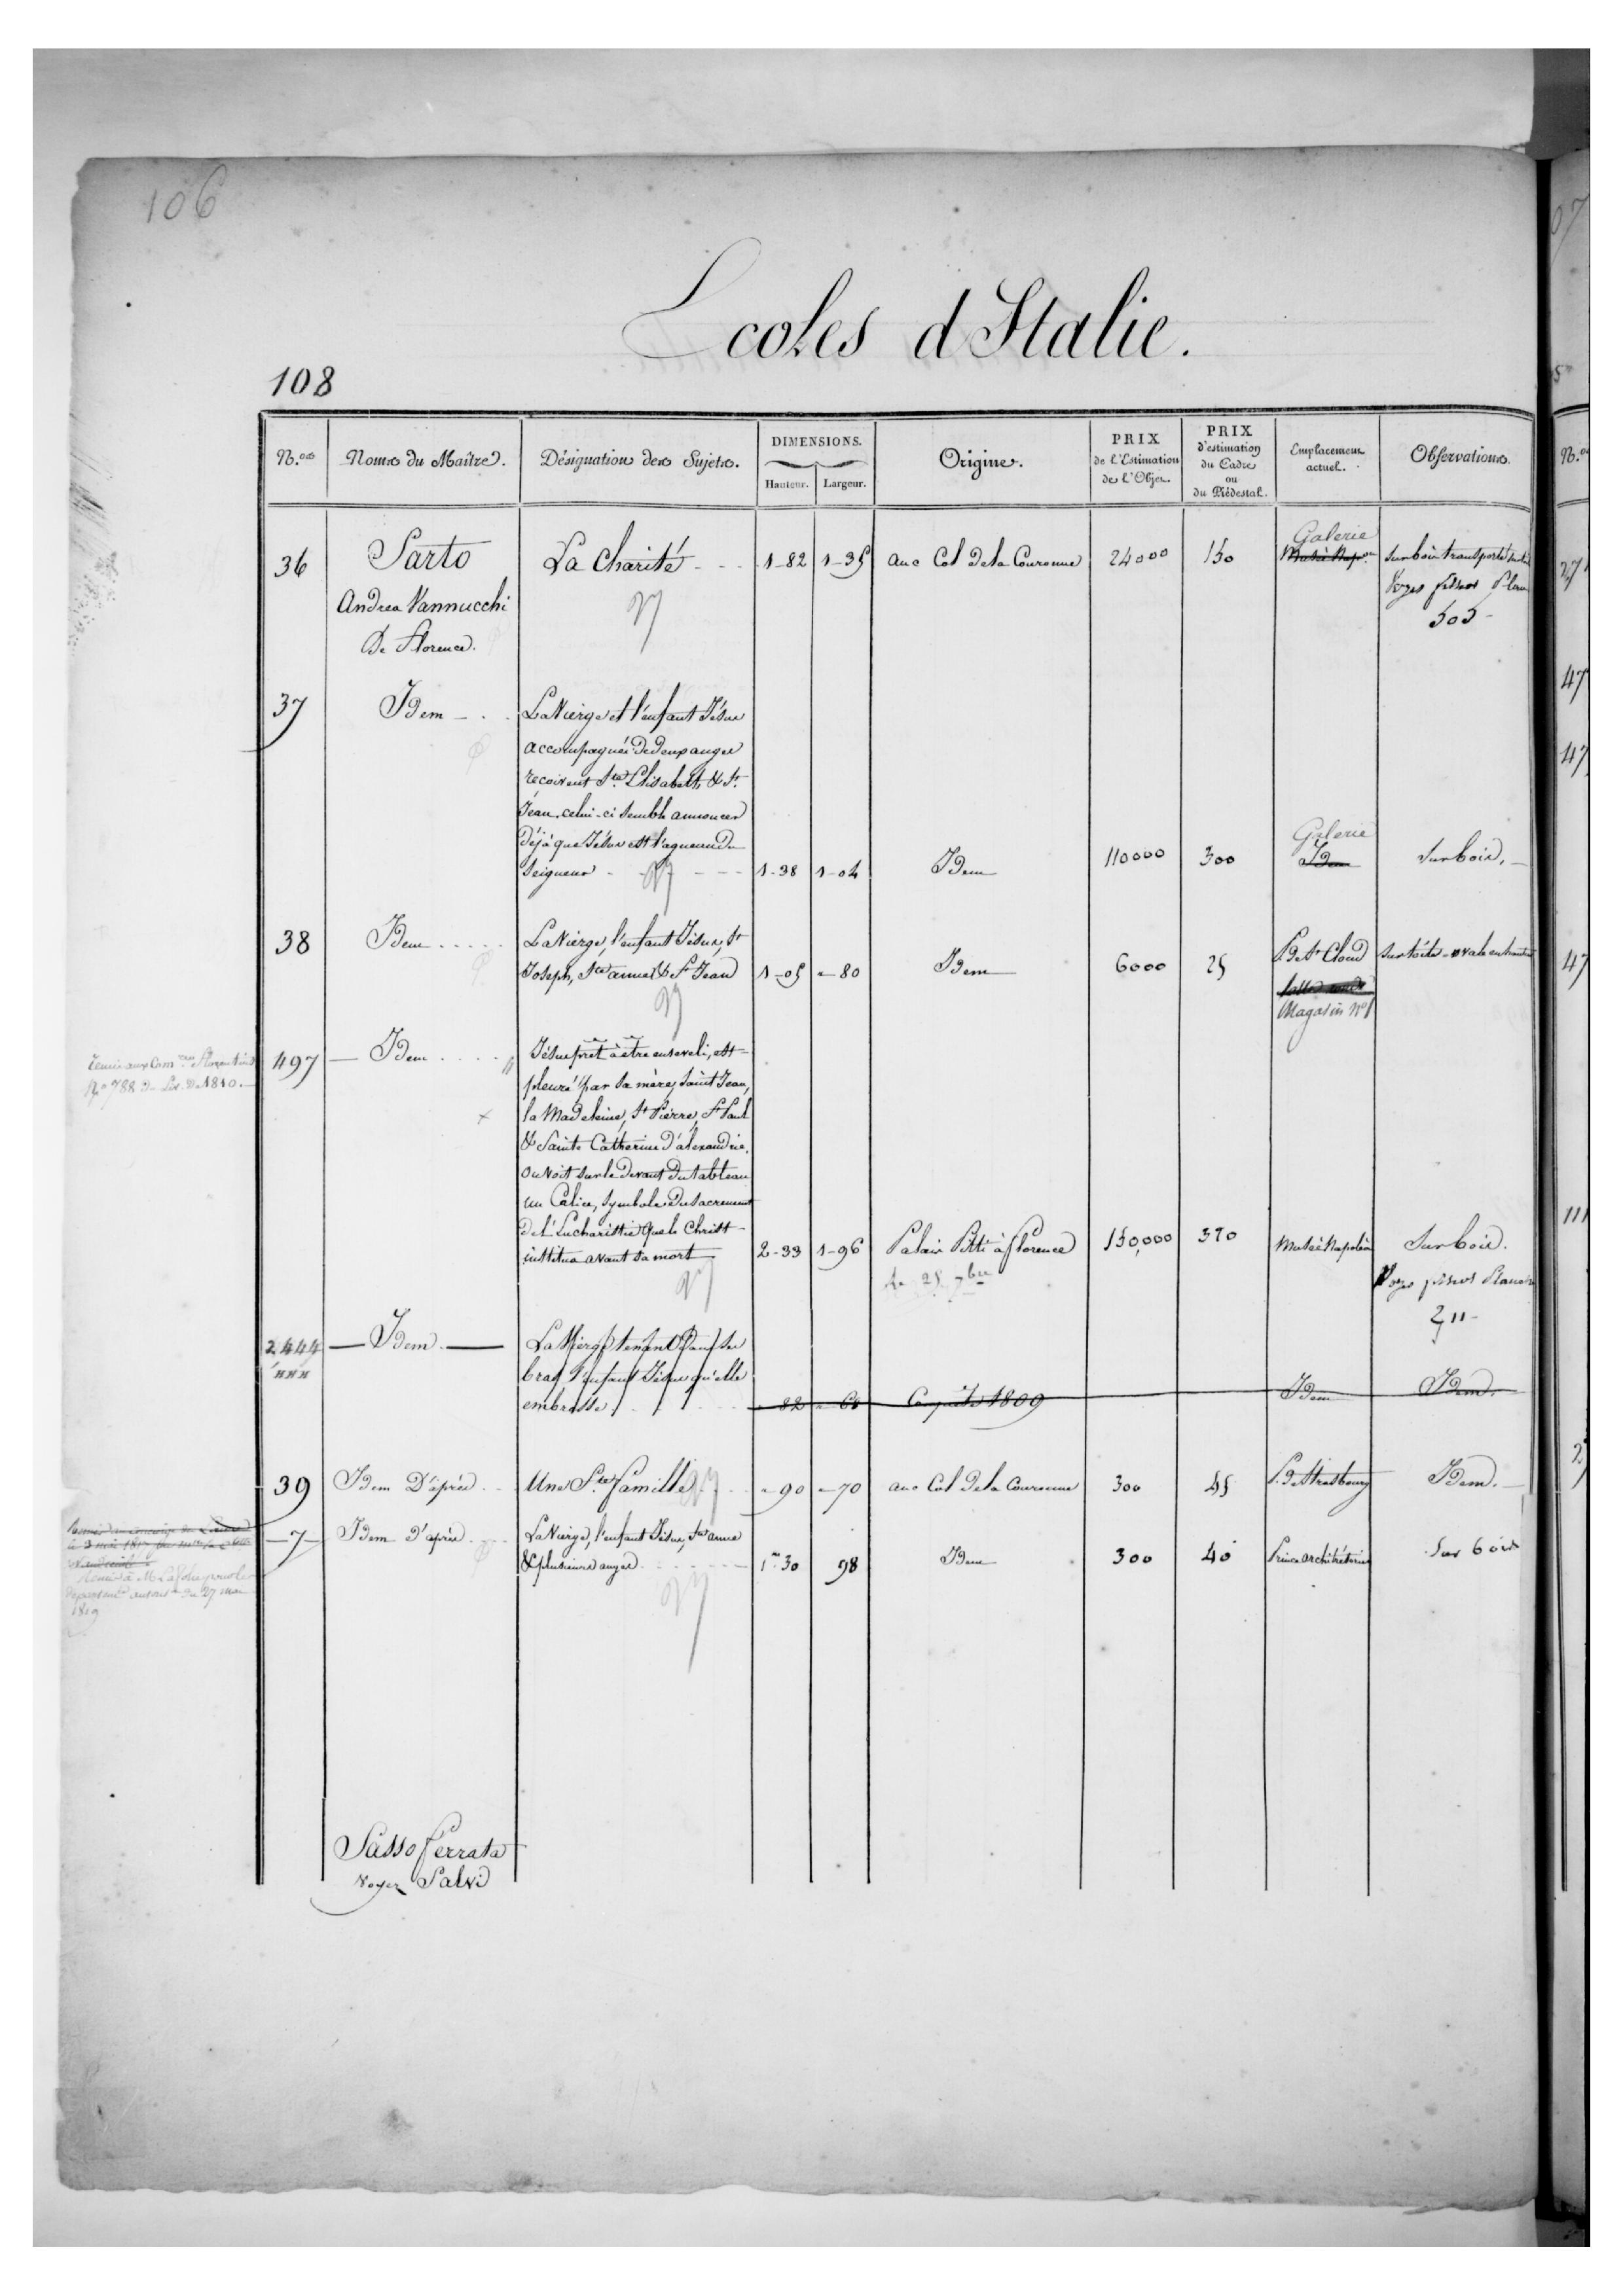 106
Ecoles d'Italie.
108
N.os
Noms du Maître.
Désignation des Sujets.
DIMENSIONS.
Hauteur.
Largeur.
Origine.
PRIX
de l'Estimation
de l'Objet.
PRIX
d'estimation
du Cadre
ou
du Piédestal.
Emplacement
actuel.
Observations.
36
Sarto
Andrea Vannucchi
De Florence.
La Charité
1-82
1-35
anc Col de la Couronne
24000
150
Galerie
Musée Nap.on
Sur bois transporté
Voyez
505
37
Idem
La Vierge et l'enfant Jésus
accompagnés de deux anges
reçoivent Ste Elisabeth & St
Jean, celui-ci semble annoncer
déjà que Jésus est l'agneau du
Seigneur
1-38
1-04
Idem
110000
300
Galerie
Idem
Sur bois.
38
Idem
La Vierge, l'enfant Jésus, St
Joseph, Ste anne & St Jean
1-05
"-80
Idem
6000
25
P. de St Cloud
Magasin No 1
sur toile - ovale en hauteur
No 788
De 1810.
497
Idem
Jésus prêt à être enseveli, est
pleuré par sa mère, Saint Jean,
la Madeleine, St Pierre, St Paul
& Sainte Catherine d'alexandrie.
On voit sur le devant du tableau
un Calice, symbole du sacrement
de l'Eucharistie que le Christ
institua avant sa mort
2-33
1-96
Palais Pitti à florence
150,000
Musée Napoléon
Sur bois.
Voyez
2444
Idem
La Vierge tenant dans ses
bras l'enfant Jésus qu'elle
embrasse
"-82
Conquête 1809
Idem
Idem.
39
Idem D'après
Une Ste famille
"-90
"-70
anc Col de la Couronne
300
45
P. de Strasbourg
Idem.
-7-
Idem D'après
La Vierge, l'enfant Jésus, Ste anne
& plusieurs anges
1m 30
98
Idem
300
40
Prince architrésorier
Sur bois
du 27 mai
1819
Sasso ferrata
Voyez Salvi